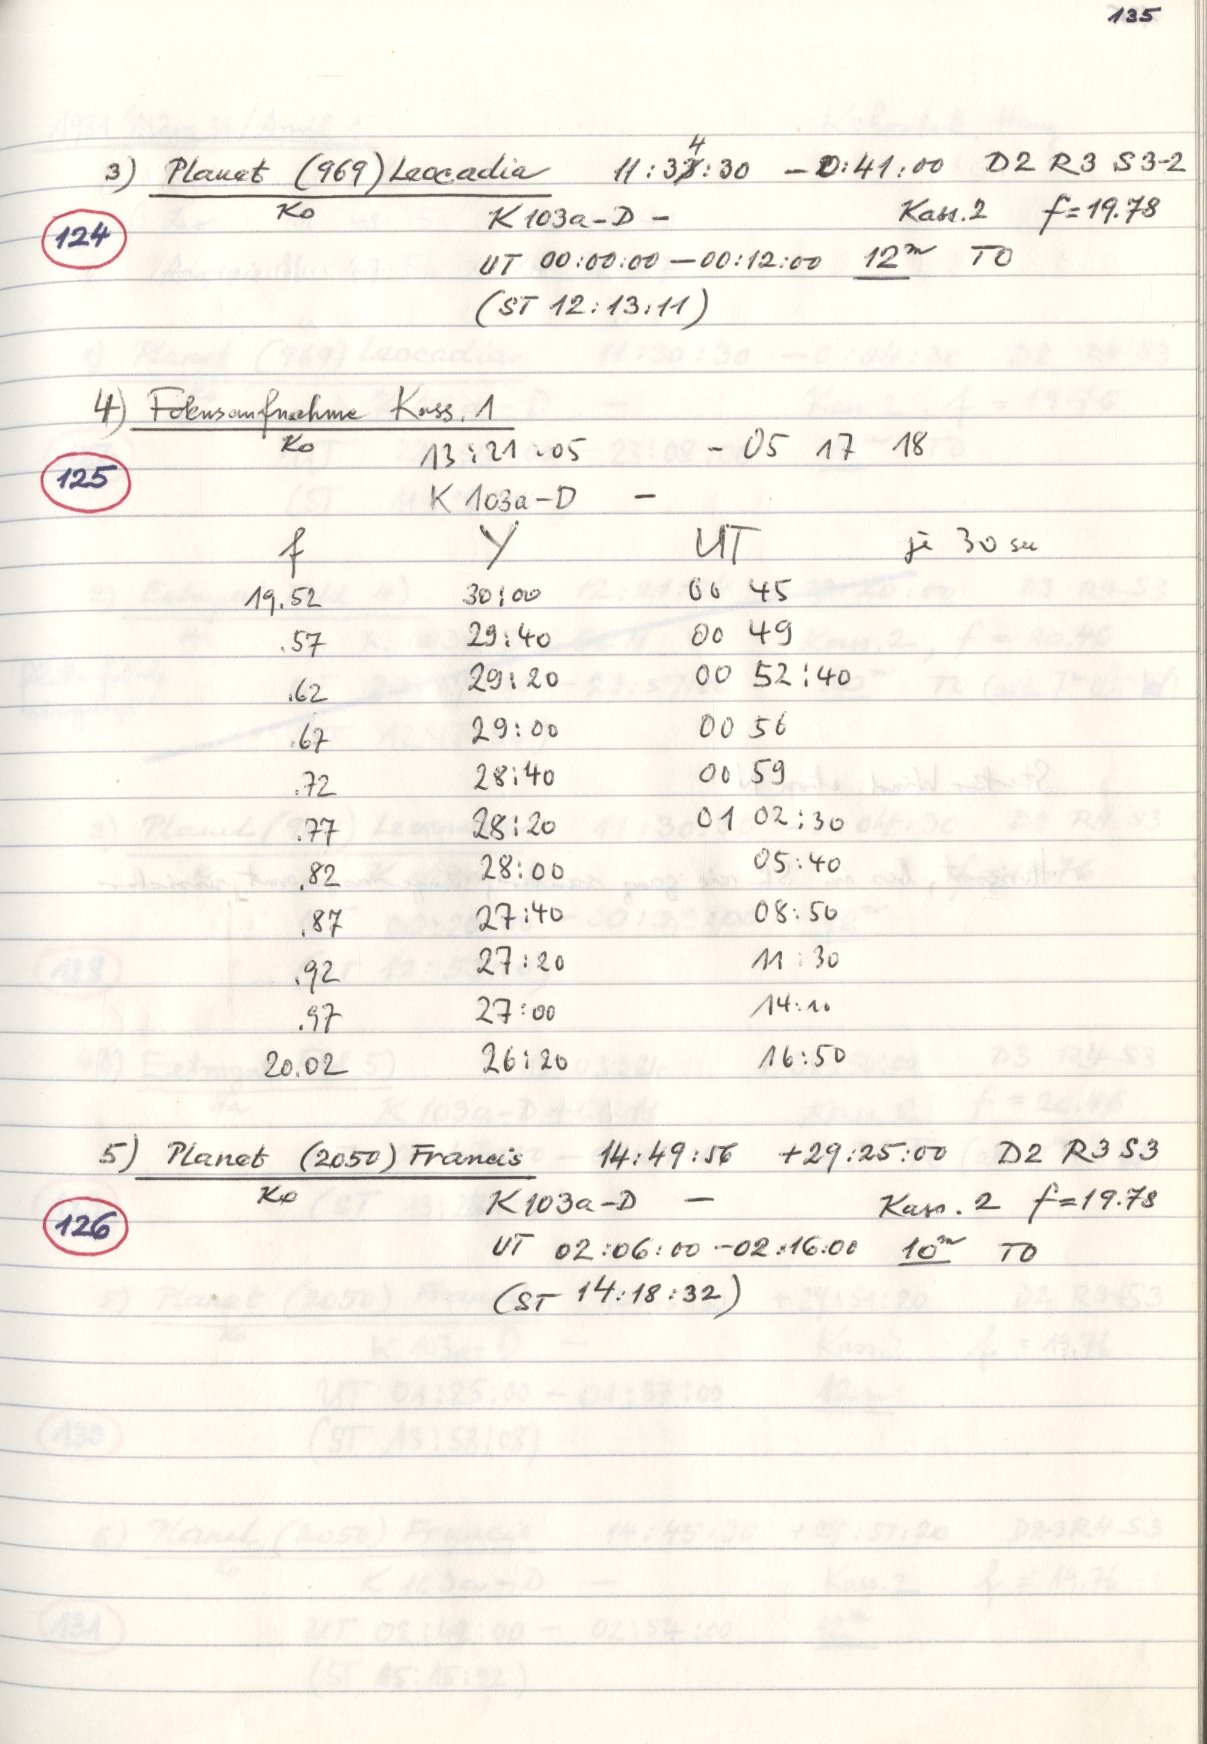 135
3) Planet (969) Leocadia 11:34:30 -0:41:00 D2 R3 S3-2
Ko K103a-D - Kass.2 f=19.78
124
UT 00:00:00 - 00:12:00 12m TO
(ST 12:13:11)
4) Fokusaufnahme Kass. 1
Ko 13:21:05 - 05 17 18
125
K 103a-D -
f Y UT je 30 sec
19.52 30:00 00 45
.57 29:40 00 49
.62 29:20 00 52:40
.67 29:00 00 56
.72 28:40 00 59
.77 28:20 01 02:30
.82 28:00 05:40
.87 27:40 08:50
.92 27:20 11:30
.97 27:00 14:10
20.02 26:20 16:50
5) Planet (2050) Francis 14:49:56 +29:25:00 D2 R3 S3
Ko K103a-D - Kass. 2 f=19.78
126
UT 02:06:00 - 02:16:00 10m TO
(ST 14:18:32)